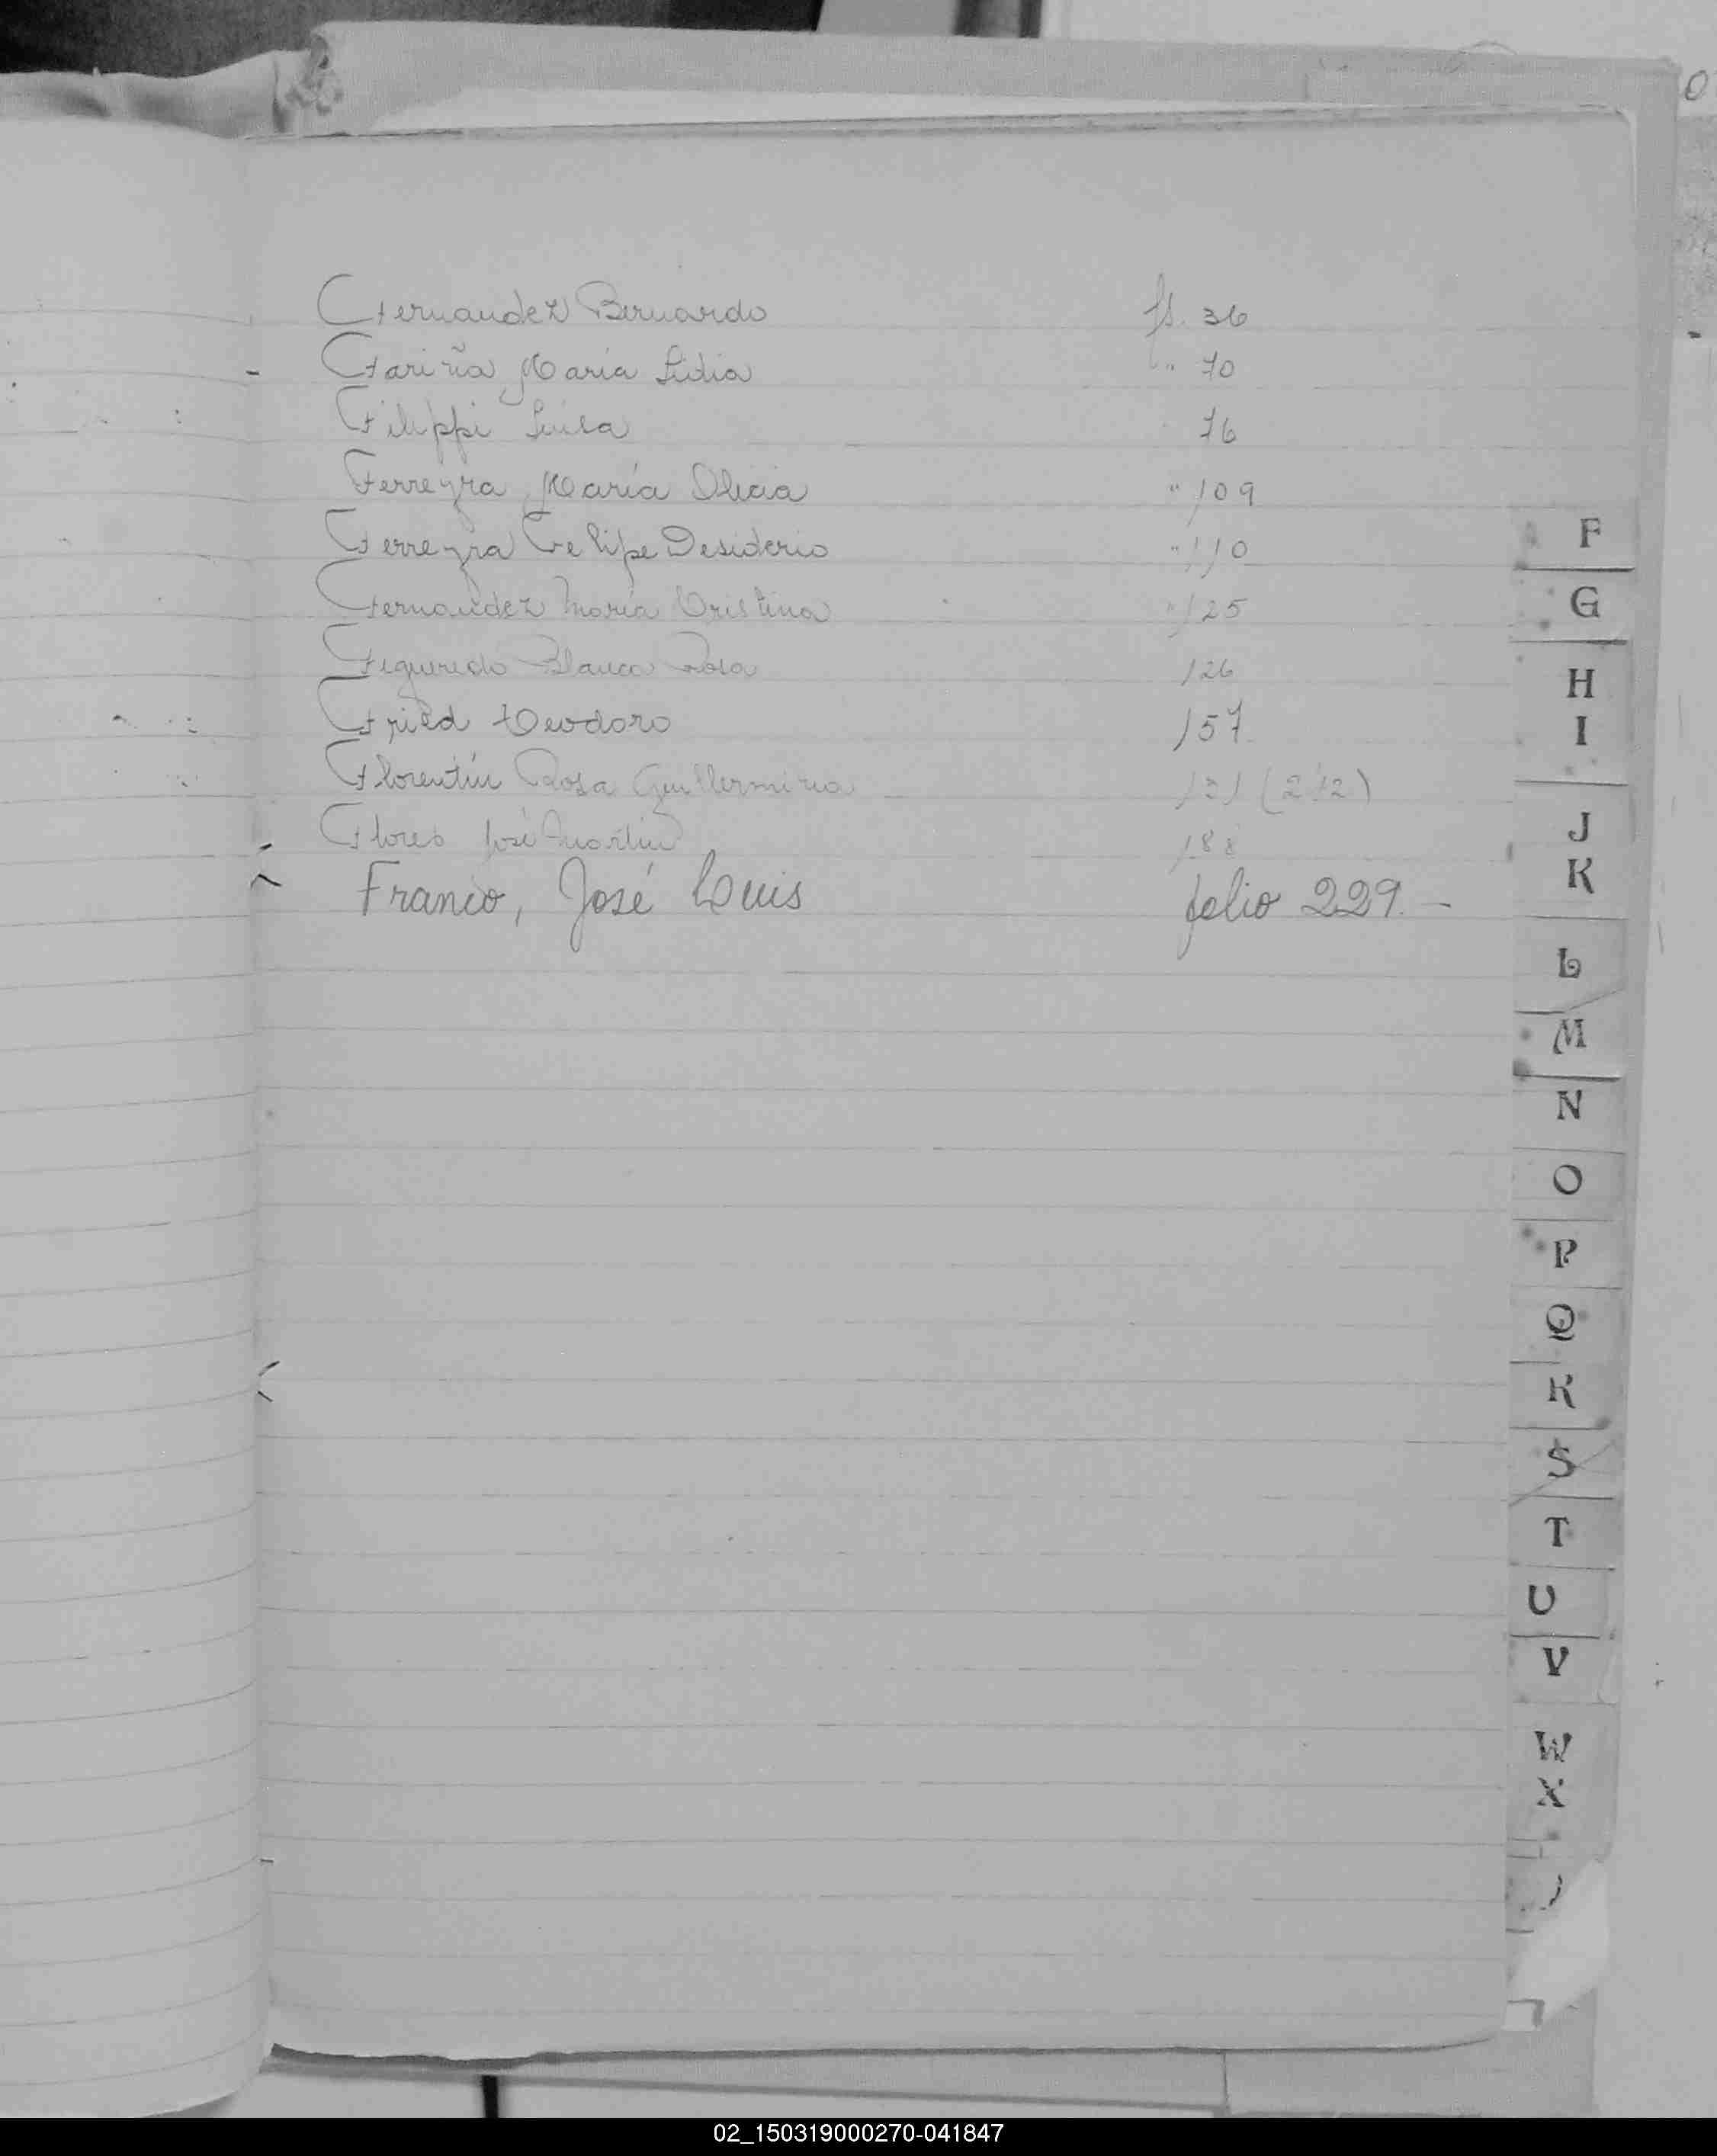 Fernandez Bernardo fs. 36
Fariña Maria Lidia " 70
Filippi Luisa 76
Ferreyra Maria Alicia " 109
Ferreyra Felipe Desiderio " 110
Fernandez Maria Cristina " 125
Figueredo Blanca Rosa 126
Fried Teodoro 157
Florentín Rosa Guillermina (212)
Flores José Martin 188
Franco, José Luis folio 229.-
F
G
H
I
J
K
L
M
N
O
P
Q
R
S
T
U
V
W
X
02_150319000270-041847